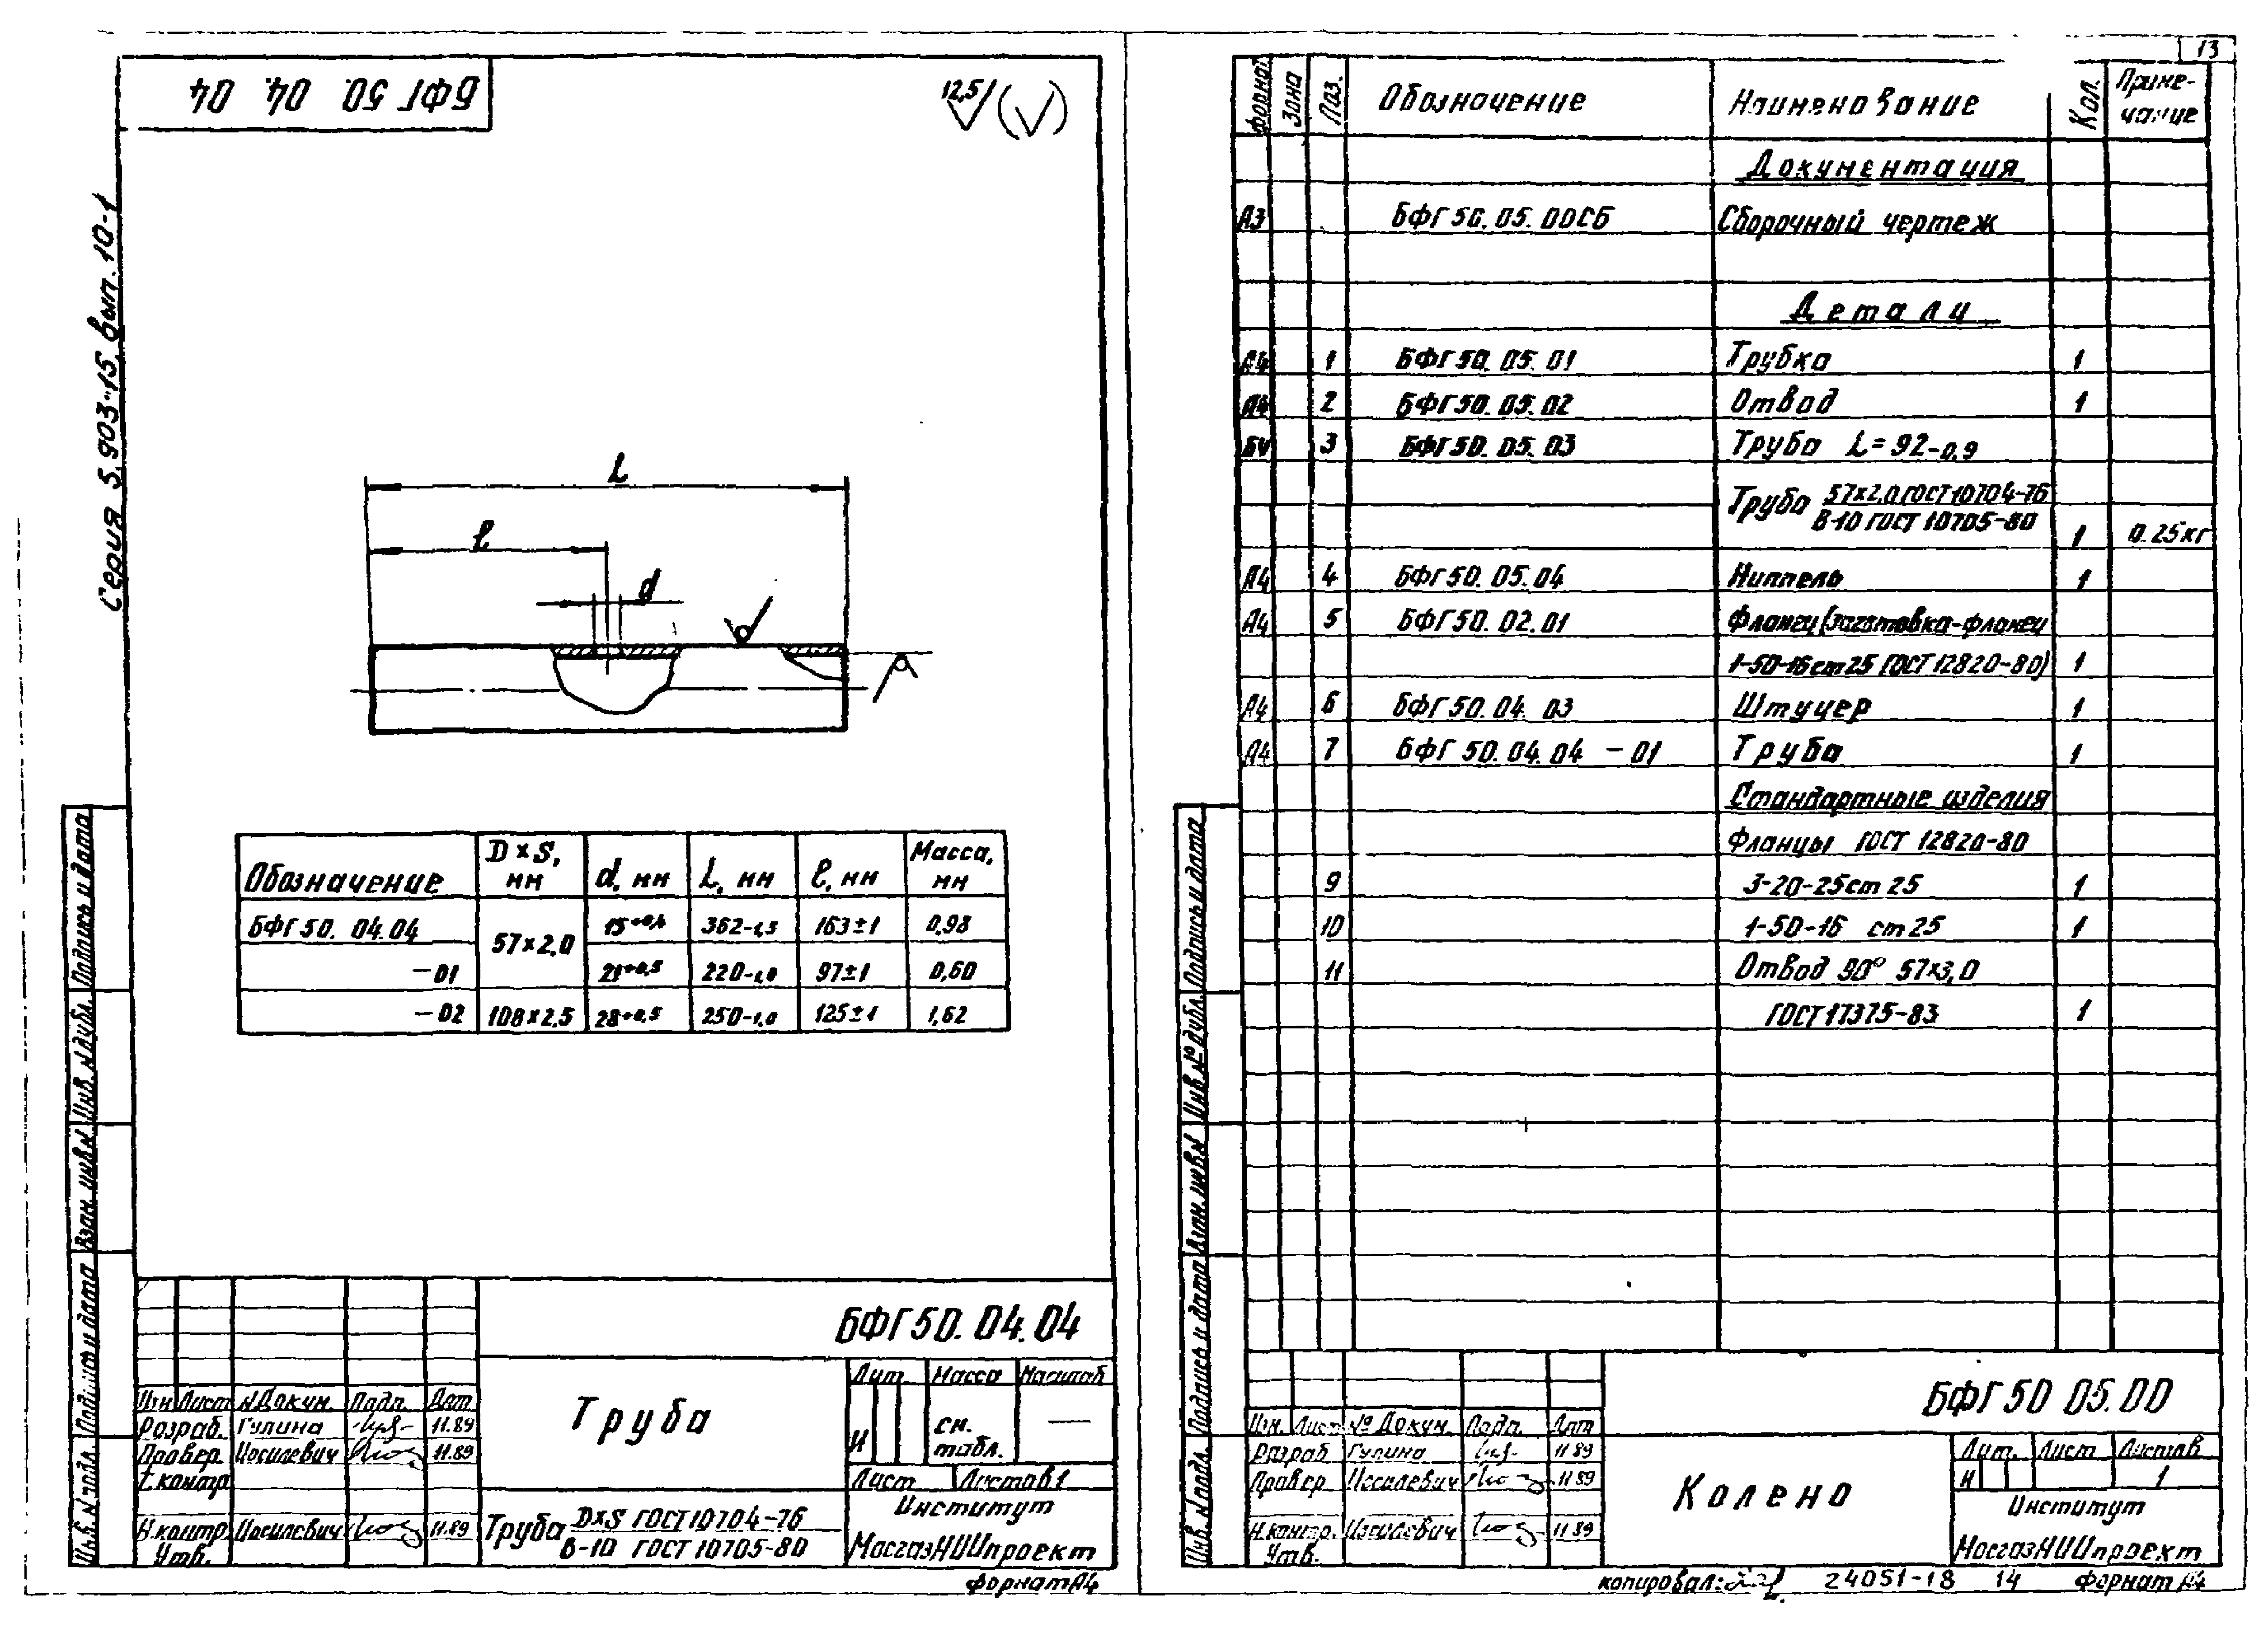 БФГ 50. 04. 04
12,5
Серия 5.903-15. Вып. 10-1
L
ℓ
d
Обозначение D×S, мм d, мм L, мм ℓ, мм Масса, мм
БФГ 50. 04.04 57×2,0 15+0,4 362-1,5 163±1 0,98
-01 21+0,5 220-1,0 97±1 0,60
-02 108×2,5 28+0,5 250-1,0 125±1 1,62
Подпись и дата
Инв. № дубл.
Взам. инв. №
Подпись и дата
Инв. № подл.
БФГ 50. 04. 04
Труба
Лит. Масса Масштаб
И см. табл. —
Лист Листов 1
Изм Лист № Докум. Подп. Дат
Разраб. Гулина 11.89
Провер. Иосилевич 11.89
Т. контр
Н. контр. Иосилевич 11.89
Утв.
Труба D×S ГОСТ 10704-76
В-10 ГОСТ 10705-80
Институт
МосгазНИИпроект
формат А4
13
Формат Зона Поз. Обозначение Наименование Кол. Примечание
Документация
А3 БФГ 50. 05. 00СБ Сборочный чертеж
Детали
А4 1 БФГ 50. 05. 01 Трубка 1
А4 2 БФГ 50. 05. 02 Отвод 1
БЧ 3 БФГ 50. 05. 03 Труба L=92-0,9
Труба 57×2,0 ГОСТ 10704-76
В-10 ГОСТ 10705-80 1 0.25кг
А4 4 БФГ 50. 05. 04 Ниппель 1
А4 5 БФГ 50. 02. 01 Фланец (заготовка-фланец
1-50-16 ст 25 ГОСТ 12820-80) 1
А4 6 БФГ 50. 04. 03 Штуцер 1
А4 7 БФГ 50. 04. 04 - 01 Труба 1
Стандартные изделия
Фланцы ГОСТ 12820-80
9 3-20-25 ст 25 1
10 1-50-16 ст 25 1
11 Отвод 90° 57×3,0
ГОСТ 17375-83 1
Подпись и дата
Инв. № дубл.
Взам. инв. №
Подпись и дата
Инв. № подл.
БФГ 50 05. 00
Изм. Лист № Докум. Подп. Дат
Разраб Гулина 11 89
Провер Иосилевич 11 89
Н. контр. Иосилевич 11 89
Утв.
Колено
Лит. Лист Листов
И 1
Институт
МосгазНИИпроект
копировал: 24051-18 14 формат А4